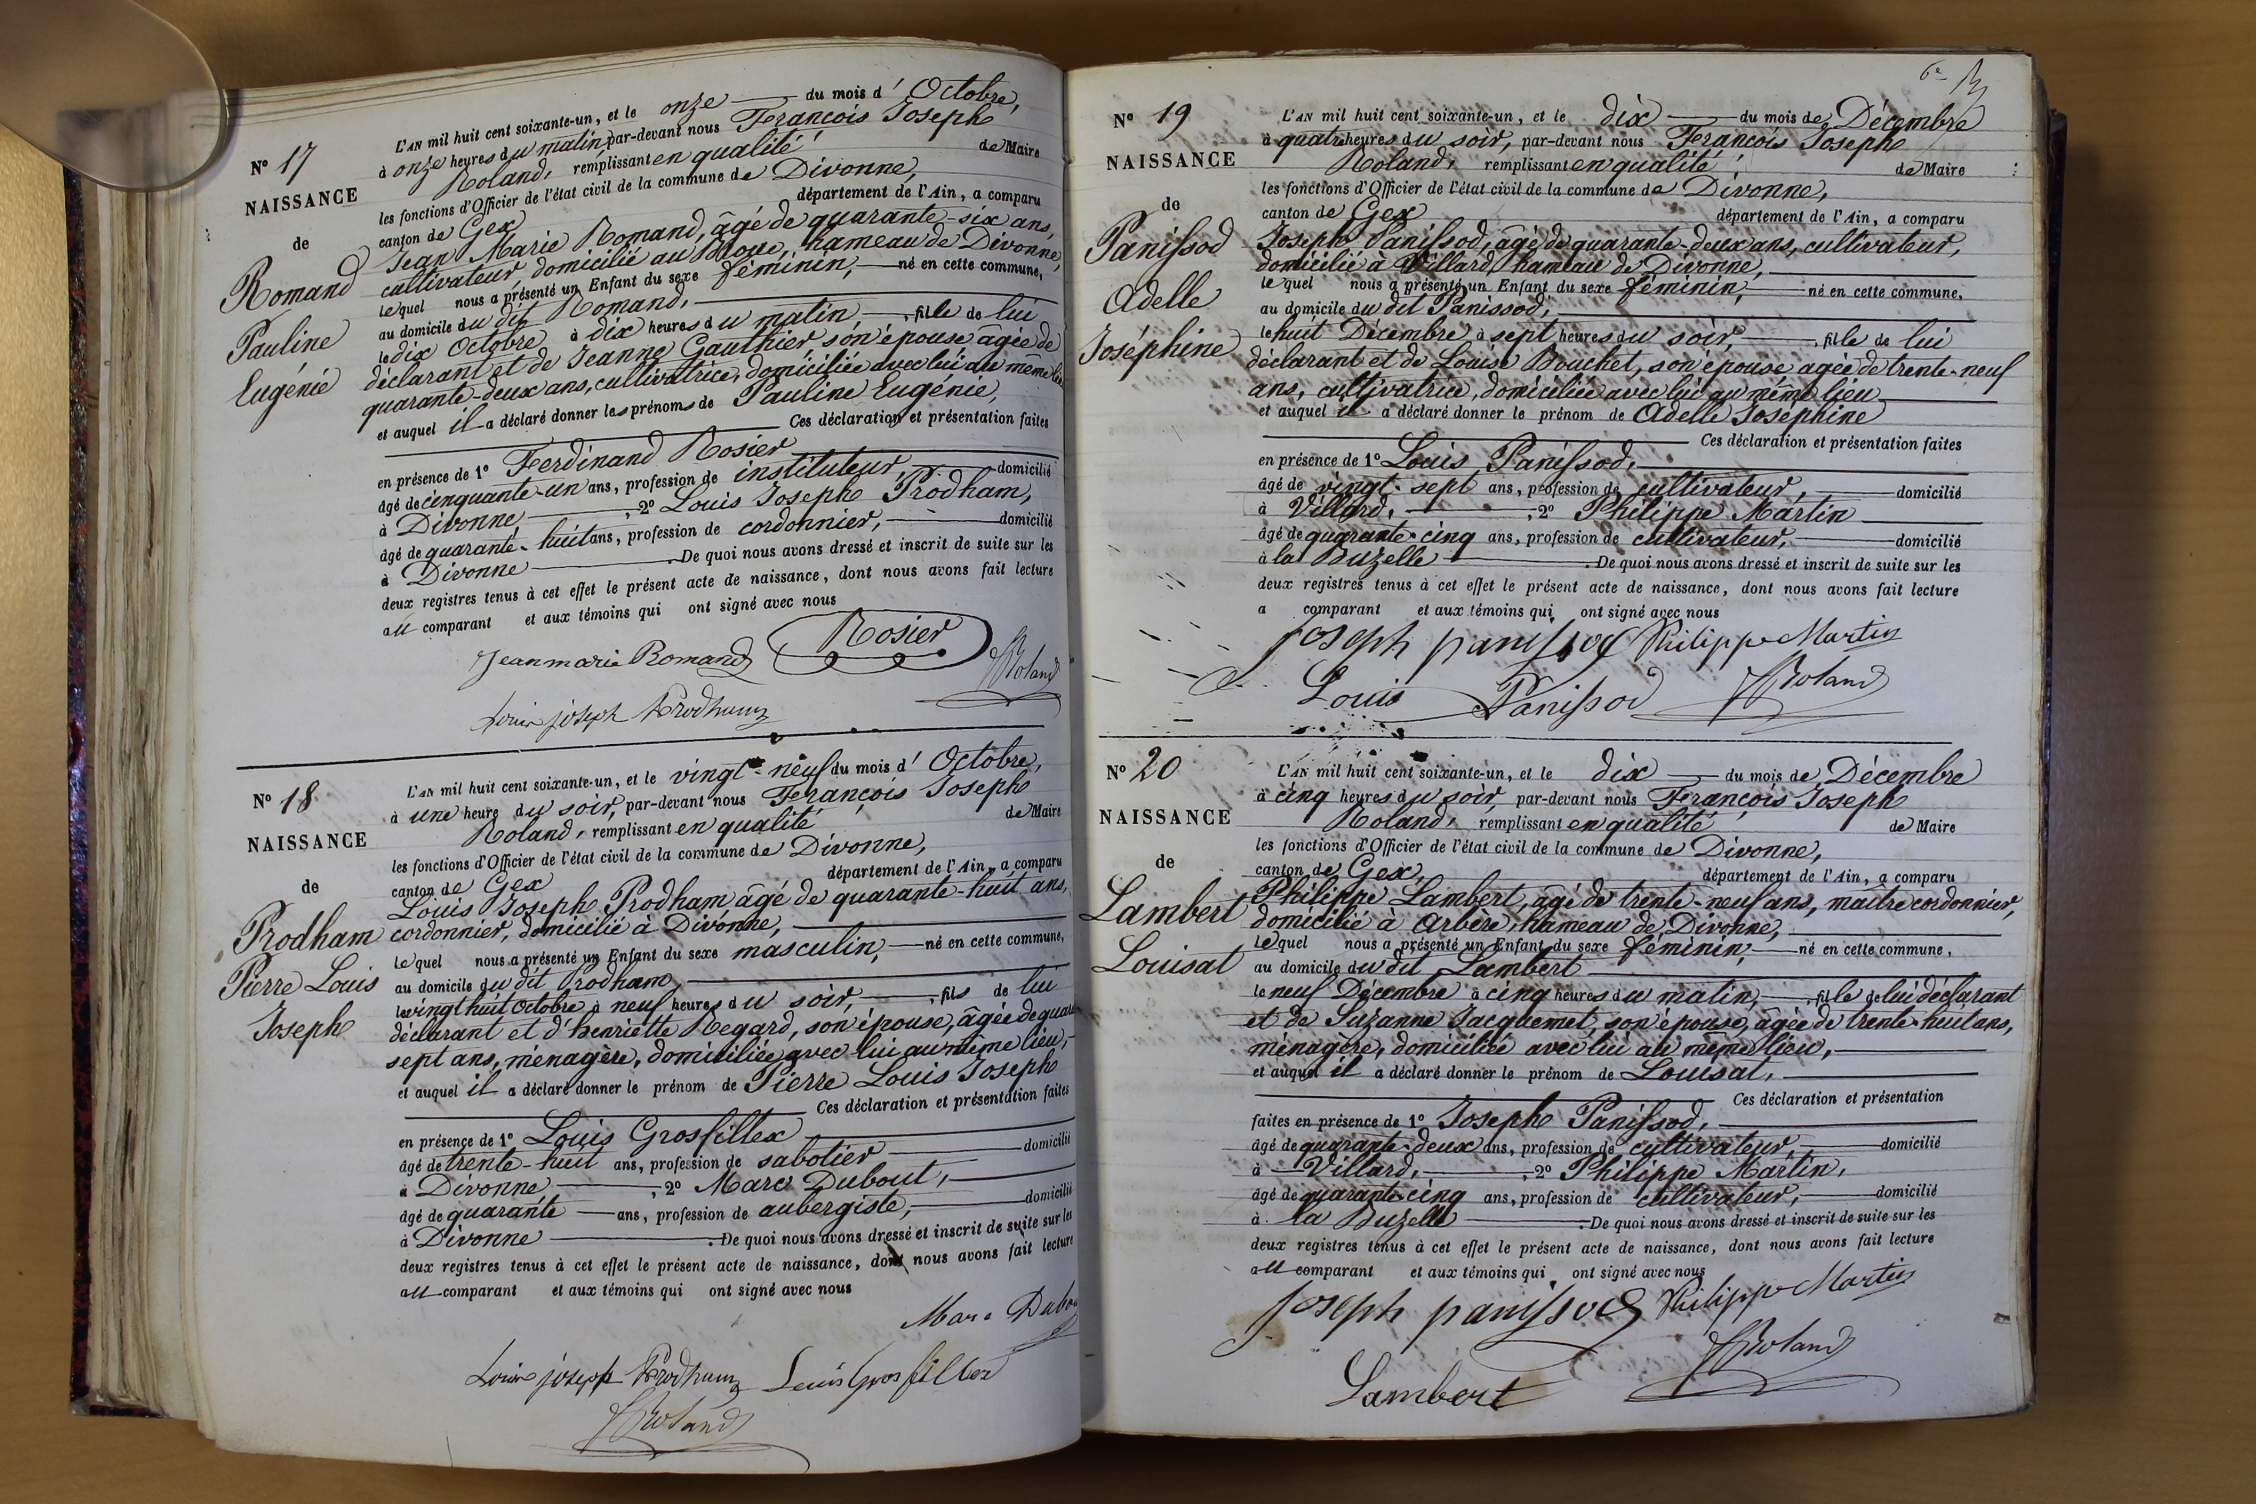 N° 17
NAISSANCE
de
Romand
Pauline
Eugénie
L'AN mil huit cent soixante-un, et le onze du mois d' Octobre,
à onze heures du matin, par-devant nous François Joseph
Roland, remplissant en qualité de Maire
les fonctions d'Officier de l'état civil de la commune de Divonne,
canton de Gex département de l'Ain, a comparu
Jean Marie Romand, âgé de quarante-six ans,
cultivateur, domicilié au hameau de Divonne,
lequel nous a présenté un Enfant du sexe féminin, né en cette commune,
au domicile du dit Romand,
le dix Octobre à dix heures du matin, fille de lui
déclarant et de Jeanne Gauthier son épouse âgée de
quarante-deux ans, cultivatrice, domiciliée avec lui au même lieu
et auquel il a déclaré donner les prénoms de Pauline Eugénie,
Ces déclaration et présentation faites
en présence de 1° Ferdinand Rosier
âgé de cinquante-un ans, profession de instituteur, domicilié
à Divonne, 2° Louis Joseph Prodham,
âgé de quarante-huit ans, profession de cordonnier, domicilié
à Divonne. De quoi nous avons dressé et inscrit de suite sur les
deux registres tenus à cet effet le présent acte de naissance, dont nous avons fait lecture
au comparant et aux témoins qui ont signé avec nous
Jean marie Romand Rosier Roland
Louis joseph Prodham
N° 18
NAISSANCE
de
Prodham
Pierre Louis
Joseph
L'AN mil huit cent soixante-un, et le vingt-neuf du mois d' Octobre,
à une heure du soir, par-devant nous François Joseph
Roland, remplissant en qualité de Maire
les fonctions d'Officier de l'état civil de la commune de Divonne,
canton de Gex département de l'Ain, a comparu
Louis Joseph Prodham âgé de quarante-huit ans,
cordonnier, domicilié à Divonne,
lequel nous a présenté un Enfant du sexe masculin, né en cette commune,
au domicile du dit Prodham,
le vingt huit Octobre à neuf heures du soir, fils de lui
déclarant et d'henriette Regard, son épouse, âgée de quarante
sept ans, ménagère, domiciliée avec lui au même lieu,
et auquel il a déclaré donner le prénom de Pierre Louis Joseph
Ces déclaration et présentation faites
en présence de 1° Louis Grosfillex
âgé de trente-huit ans, profession de sabotier domicilié
à Divonne, 2° Marc Dubout,
âgé de quarante ans, profession de aubergiste, domicilié
à Divonne. De quoi nous avons dressé et inscrit de suite sur les
deux registres tenus à cet effet le présent acte de naissance, dont nous avons fait lecture
au comparant et aux témoins qui ont signé avec nous
Marc
Louis joseph Prodham Louis Grosfillex
Roland
N° 19
NAISSANCE
de
Panissod
Adelle
Joséphine
L'AN mil huit cent soixante-un, et le dix du mois de Décembre
à quatre heures du soir, par-devant nous François Joseph
Roland, remplissant en qualité de Maire
les fonctions d'Officier de l'état civil de la commune de Divonne,
canton de Gex département de l'Ain, a comparu
Joseph Panissod, âgé de quarante-deux ans, cultivateur,
domicilié à Villard, hameau de Divonne,
lequel nous a présenté un Enfant du sexe féminin, né en cette commune,
au domicile du dit Panissod,
le huit Décembre à sept heures du soir, fille de lui
déclarant et de Louise Bouchet, son épouse agée de trente-neuf
ans, cultivatrice, domiciliée avec lui au même lieu
et auquel il a déclaré donner le prénom de Adelle Joséphine
Ces déclaration et présentation faites
en présence de 1° Louis Panissod,
âgé de vingt-sept ans, profession de cultivateur, domicilié
à Villard, 2° Philippe Martin
âgé de quarante-cinq ans, profession de cultivateur, domicilié
à la Buzelle. De quoi nous avons dressé et inscrit de suite sur les
deux registres tenus à cet effet le présent acte de naissance, dont nous avons fait lecture
a comparant et aux témoins qui ont signé avec nous
joseph panissod Philippe Martin
Louis Panissod Roland
N° 20
NAISSANCE
de
Lambert
Louisat
L'AN mil huit cent soixante-un, et le dix du mois de Décembre
à cinq heures du soir, par-devant nous François Joseph
Roland, remplissant en qualité de Maire
les fonctions d'Officier de l'état civil de la commune de Divonne,
canton de Gex, département de l'Ain, a comparu
Philippe Lambert, âgé de trente-neuf ans, maître cordonnier,
domicilié à Arbère, hameau de Divonne,
lequel nous a présenté un Enfant du sexe féminin, né en cette commune,
au domicile du dit Lambert
le neuf Décembre à cinq heures du matin, fille de lui déclarant
et de Suzanne Jacquemet, son épouse, âgée de trente-huit ans,
ménagère, domiciliée avec lui au même lieu,
et auquel il a déclaré donner le prénom de Louisat,
Ces déclaration et présentation
faites en présence de 1° Joseph Panissod,
âgé de quarante-deux ans, profession de cultivateur, domicilié
à Villard, 2° Philippe Martin,
âgé de quarante-cinq ans, profession de cultivateur, domicilié
à la Buzelle. De quoi nous avons dressé et inscrit de suite sur les
deux registres tenus à cet effet le présent acte de naissance, dont nous avons fait lecture
au comparant et aux témoins qui ont signé avec nous
joseph panissod Philippe Martin
Roland
Lambert